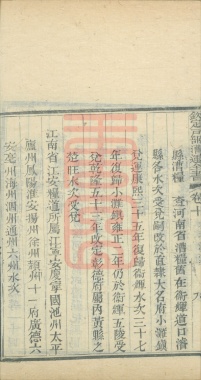 欽定戶部漕運全書 卷十
縣漕糧 查河南省漕糧舊在衛輝道口濬
縣各水次受兌嗣改於直隸大名府小灘鎮
兌運康熙三十五年復歸衛輝水次三十七
年復歸小灘鎮雍正二年仍於衛輝五陵受
兌乾隆五十二年改定彰德府屬內黃縣之
范旺水次受兌
江南省江安糧道所屬江寧安慶寧國池州太平
廬州鳳陽淮安揚州徐州潁州十一府廣德六
安亳州海州泗州通州六州水次